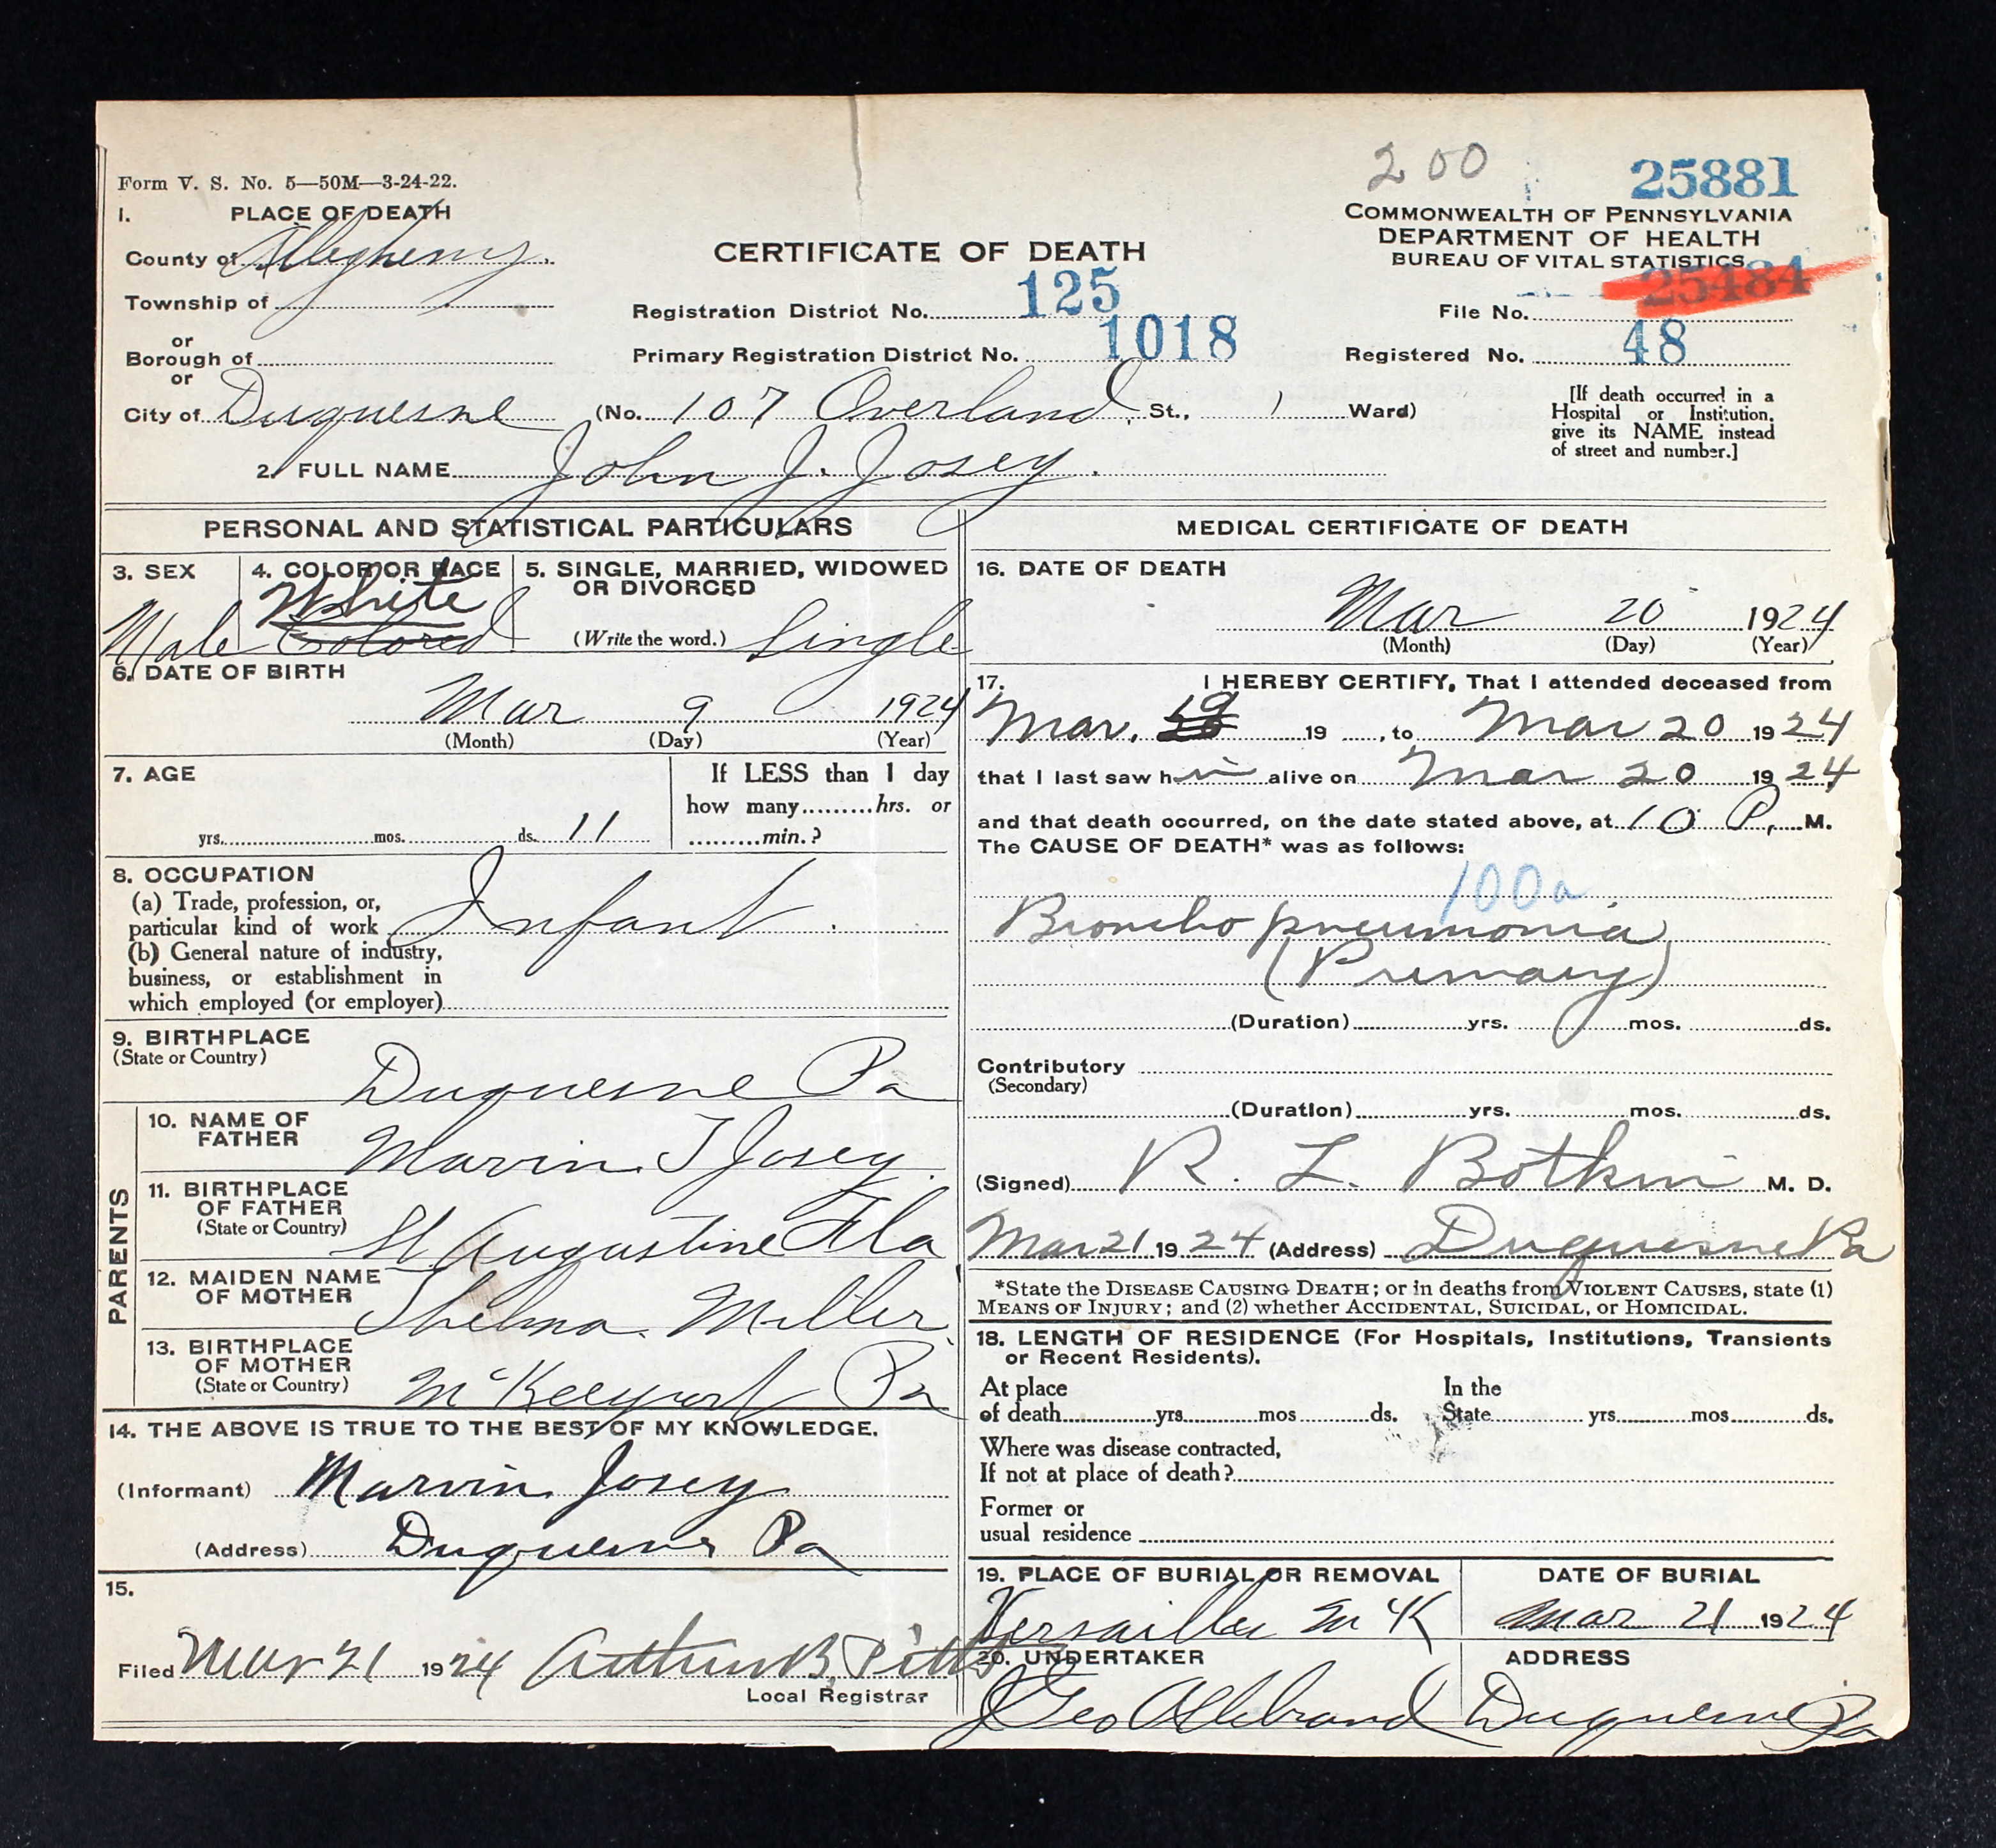 200 25881
Form V. S. No. 5—50M—3-24-22.
1. PLACE OF DEATH
County of Allegheny.
Township of
or
Borough of
or
City of Duquesne (No. 107 Overland St., 1 Ward)
CERTIFICATE OF DEATH
Registration District No. 125
Primary Registration District No. 1018
COMMONWEALTH OF PENNSYLVANIA
DEPARTMENT OF HEALTH
BUREAU OF VITAL STATISTICS
25484
File No.
Registered No. 48
[If death occurred in a
Hospital or Institution,
give its NAME instead
of street and number.]
2. FULL NAME John J. Josey.
PERSONAL AND STATISTICAL PARTICULARS
3. SEX
Male
4. COLOR OR RACE
White
Colored
5. SINGLE, MARRIED, WIDOWED
OR DIVORCED
(Write the word.) Single
6. DATE OF BIRTH
Mar 9 1924
(Month) (Day) (Year)
7. AGE
yrs. mos. ds. 11
If LESS than 1 day
how many hrs. or
min.?
8. OCCUPATION
(a) Trade, profession, or,
particular kind of work Infant.
(b) General nature of industry,
business, or establishment in
which employed (or employer)
9. BIRTHPLACE
(State or Country)
Duquesne Pa
PARENTS
10. NAME OF
FATHER
Marvin J Josey.
11. BIRTHPLACE
OF FATHER
(State or Country)
St Augustine Fla
12. MAIDEN NAME
OF MOTHER
Thelma Miller
13. BIRTHPLACE
OF MOTHER
(State or Country)
McKeesport Pa
14. THE ABOVE IS TRUE TO THE BEST OF MY KNOWLEDGE.
(Informant) Marvin Josey
(Address) Duquesne Pa
15.
Filed Mar 21 1924 Arthur B. Pitts
Local Registrar
MEDICAL CERTIFICATE OF DEATH
16. DATE OF DEATH
Mar 20 1924
(Month) (Day) (Year)
17. I HEREBY CERTIFY, That I attended deceased from
Mar. 19 19 , to Mar 20 1924
that I last saw him alive on Mar 20 1924
and that death occurred, on the date stated above, at 10 P. M.
The CAUSE OF DEATH* was as follows:
100a
Broncho pneumonia
(Primary)
(Duration) yrs. mos. ds.
Contributory
(Secondary)
(Duration) yrs. mos. ds.
(Signed) R. L. Botkin M. D.
Mar 21 1924 (Address) Duquesne Pa
*State the DISEASE CAUSING DEATH; or in deaths from VIOLENT CAUSES, state (1)
MEANS OF INJURY; and (2) whether ACCIDENTAL, SUICIDAL, or HOMICIDAL.
18. LENGTH OF RESIDENCE (For Hospitals, Institutions, Transients
or Recent Residents).
At place
of death yrs. mos ds.
In the
State yrs mos ds.
Where was disease contracted,
If not at place of death?
Former or
usual residence
19. PLACE OF BURIAL OR REMOVAL
Versailles McK
DATE OF BURIAL
Mar 21 1924
20. UNDERTAKER
Geo Allebrand
ADDRESS
Duquesne Pa